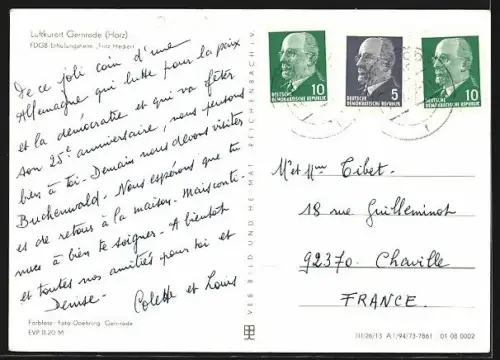 Luftkurort Gernrode (Harz)
FDGB-Erholungsheim „Fritz Heckert"
De ce joli coin d'une
Allemagne qui lutte pour la paix
et la démocratie et qui va fêter
son 25e anniversaire, nous pensons
bien à toi. Demain nous devons visiter
Buchenwald. Nous espérons que tu
es de retour à la maison. Mais conti-
nues à bien te soigner. A bientôt
et toutes nos amitiés pour toi et
Denise. Colette et Louis
Farbfoto: Foto-Doehring Gernrode
EVP 0.20 M
VEB BILD UND HEIMAT REICHENBACH I. V.
10
DEUTSCHE
DEMOKRATISCHE REPUBLIK
5
DEUTSCHE
DEMOKRATISCHE REPUBLIK
10
DEUTSCHE
DEMOKRATISCHE REPUBLIK
Mr et Mme Tibet.
18 rue Guilleminot
92370. Chaville
FRANCE.
III/26/13 A 1/94/73-7861 01 08 0002